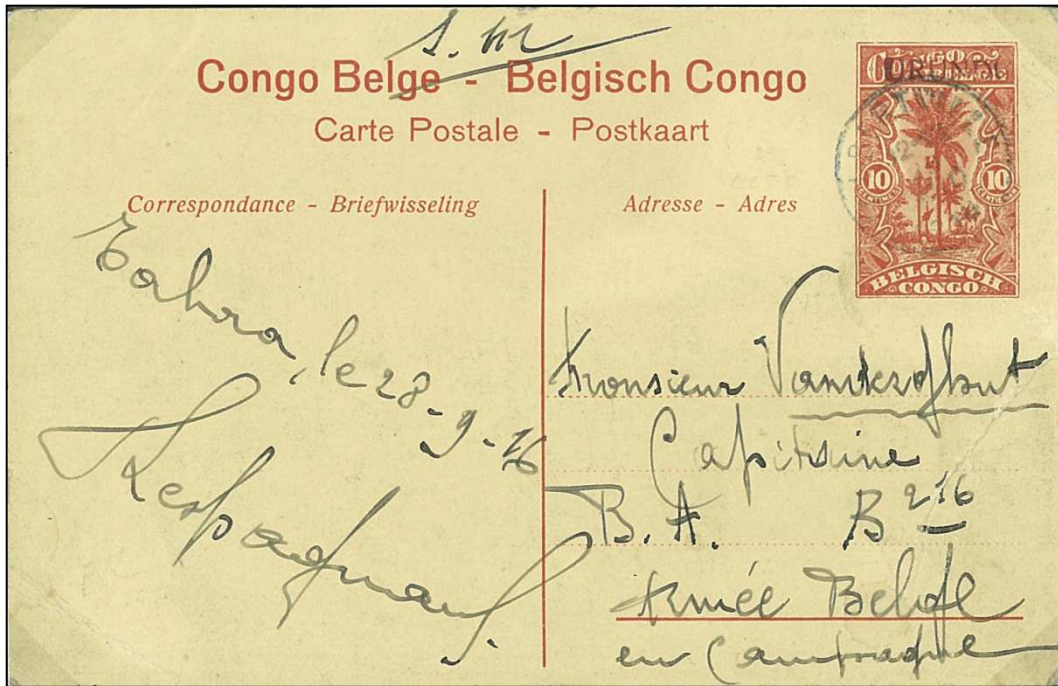 S. M
Congo Belge - Belgisch Congo
Carte Postale - Postkaart
Correspondance - Briefwisseling
Adresse - Adres
10
10
BELGISCH
CONGO
Tabora, le 28-9-16
Monsieur
Capitaine
B. A. B 216
Armée Belge
en Campagne